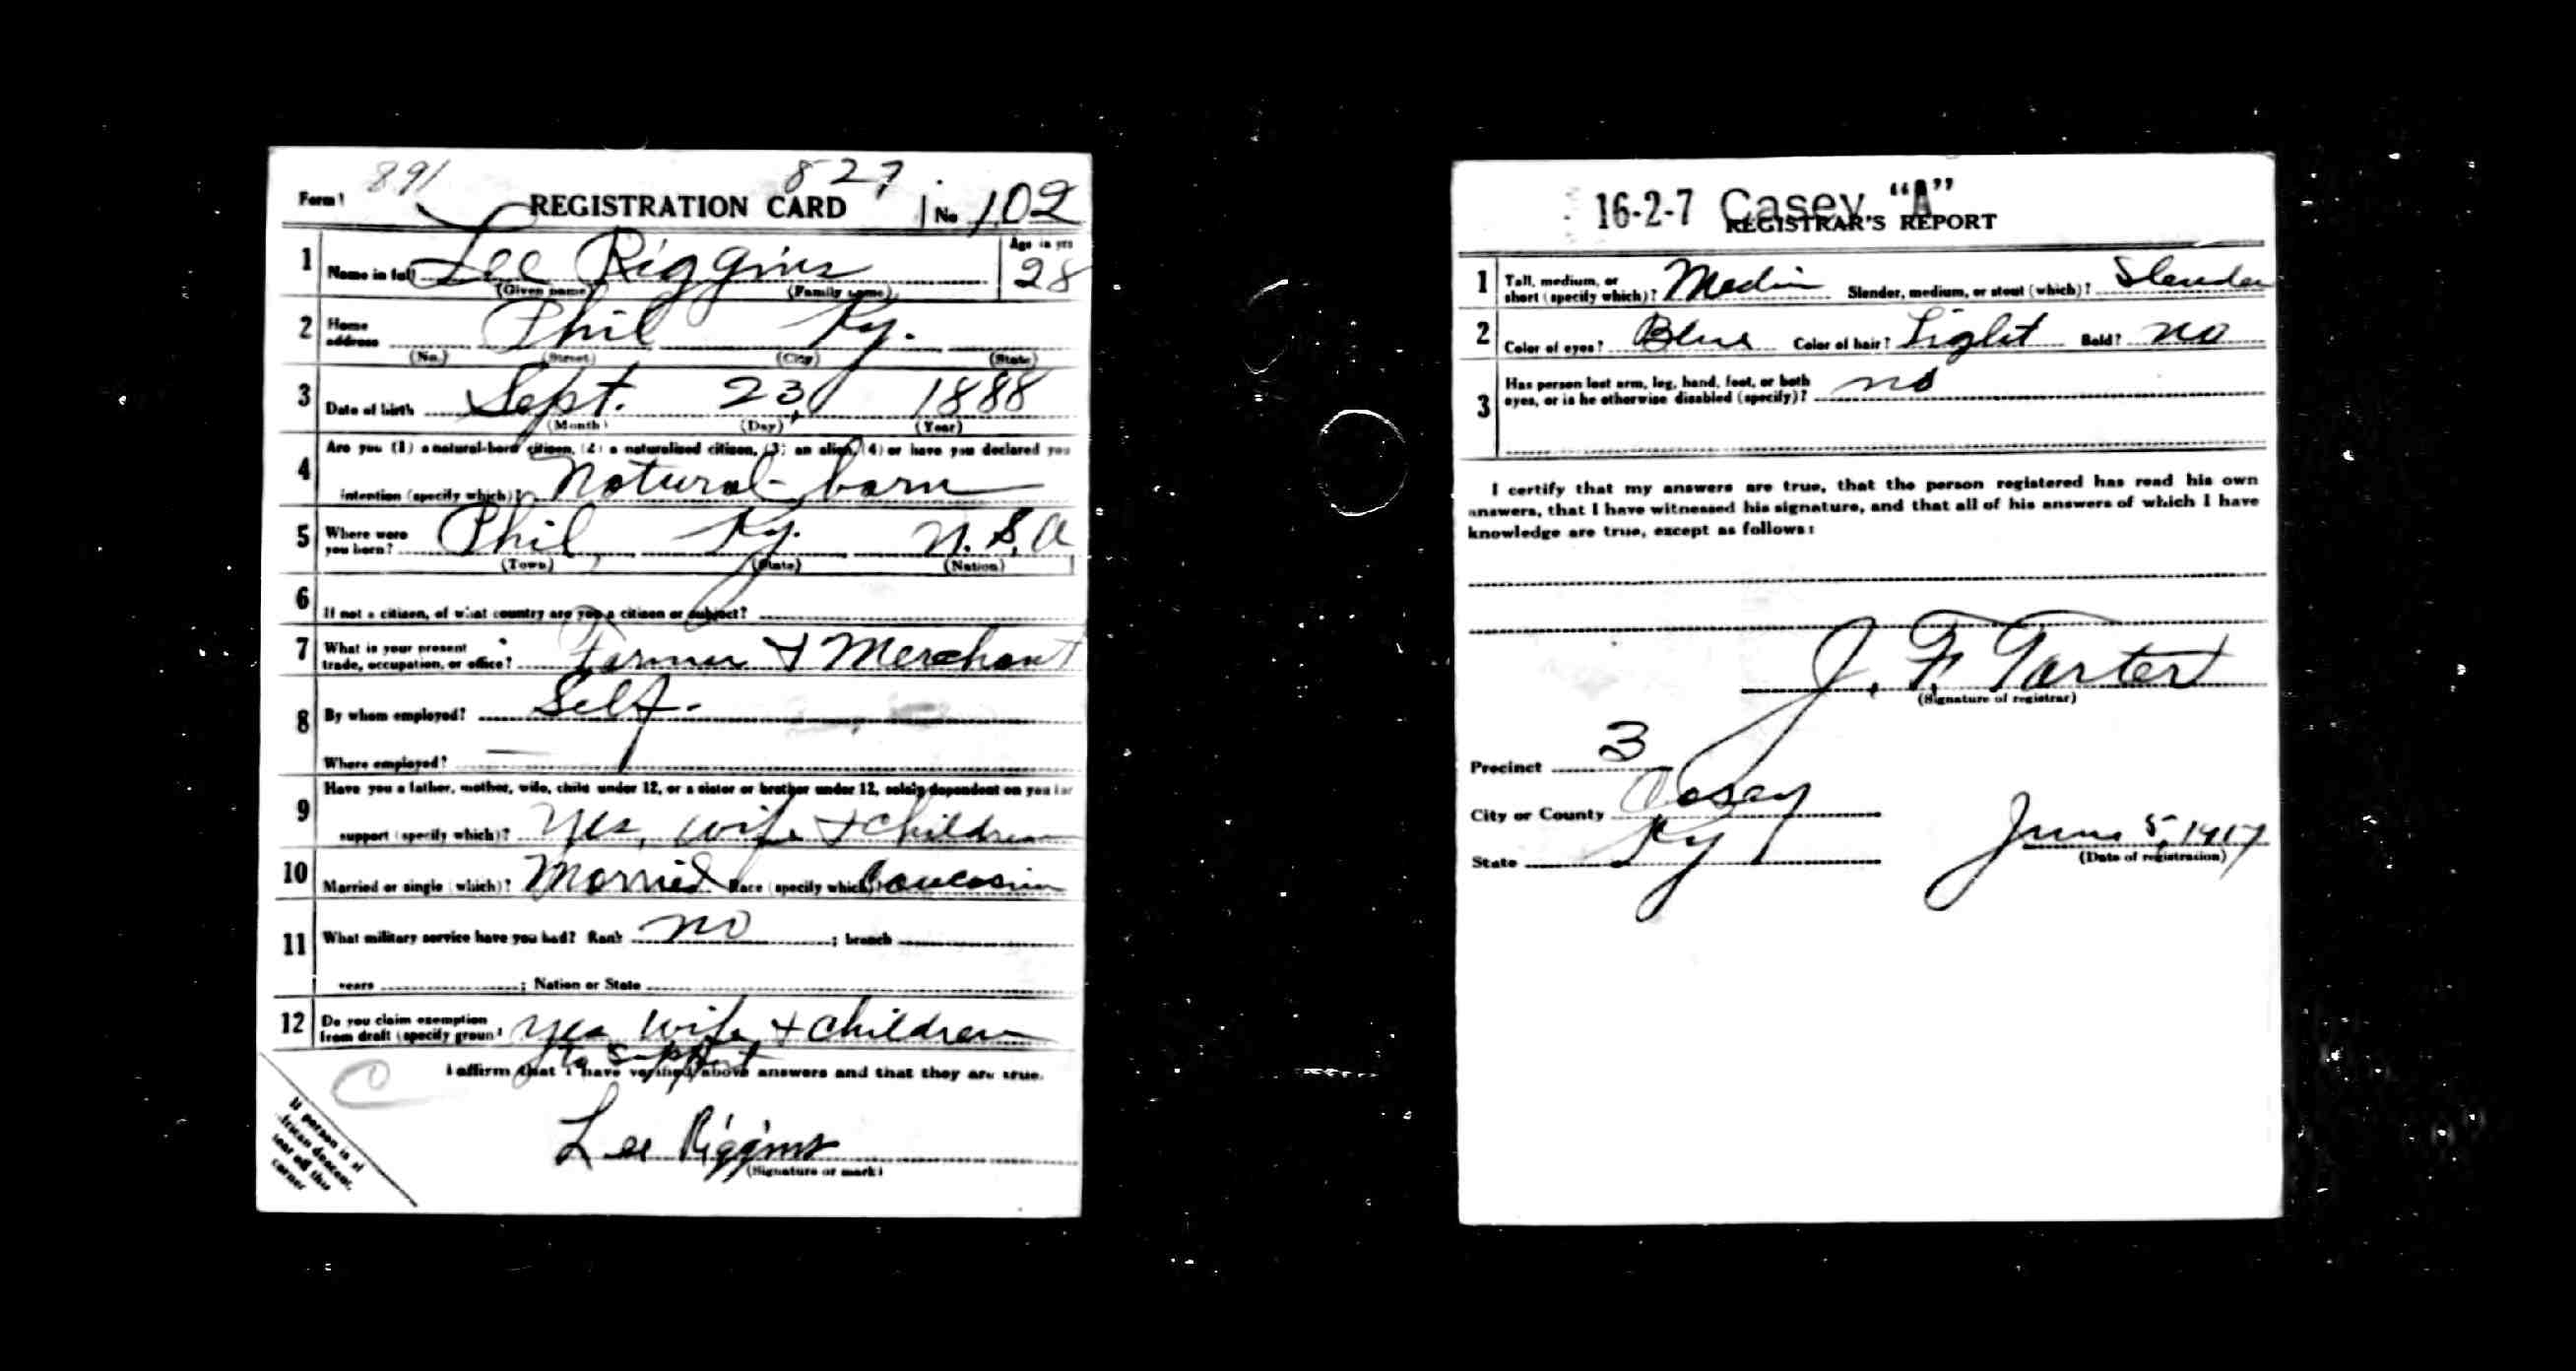 891 827
Form 1 REGISTRATION CARD No 102
1 Name in full Lee Riggins Age in yrs 28
(Given name) (Family name)
2 Home address Phil Ky.
(No.) (Street) (City) (State)
3 Date of birth Sept. 23, 1888
(Month) (Day) (Year)
4 Are you (1) a natural-born citizen, (2) a naturalized citizen, (3) an alien, (4) or have you declared your
intention (specify which)? Natural-born
5 Where were you born? Phil, Ky. U.S.A
(Town) (State) (Nation)
6 If not a citizen, of what country are you a citizen or subject?
7 What is your present trade, occupation, or office? Farmer + Merchant
8 By whom employed? Self.
Where employed?
9 Have you a father, mother, wife, child under 12, or a sister or brother under 12, solely dependent on you for
support (specify which)? Yes, wife + children
10 Married or single (which)? Married Race (specify which)? Caucasian
11 What military service have you had? Rank no ; branch
years ; Nation or State
12 Do you claim exemption from draft (specify grounds)? Yes wife + children
to support
I affirm that I have verified above answers and that they are true.
C
Lee Riggins
(Signature or mark)
If person is of
African descent,
tear off this
corner
16-2-7 Casey "A"
REGISTRAR'S REPORT
1 Tall, medium, or short (specify which)? Medium Slender, medium, or stout (which)? Slender
2 Color of eyes? Blue Color of hair? Light Bald? no
3 Has person lost arm, leg, hand, foot, or both
eyes, or is he otherwise disabled (specify)? no
I certify that my answers are true, that the person registered has read his own
answers, that I have witnessed his signature, and that all of his answers of which I have
knowledge are true, except as follows:
J. F. Tarter
(Signature of registrar)
Precinct 3
City or County Casey
State Ky June 5, 1917
(Date of registration)